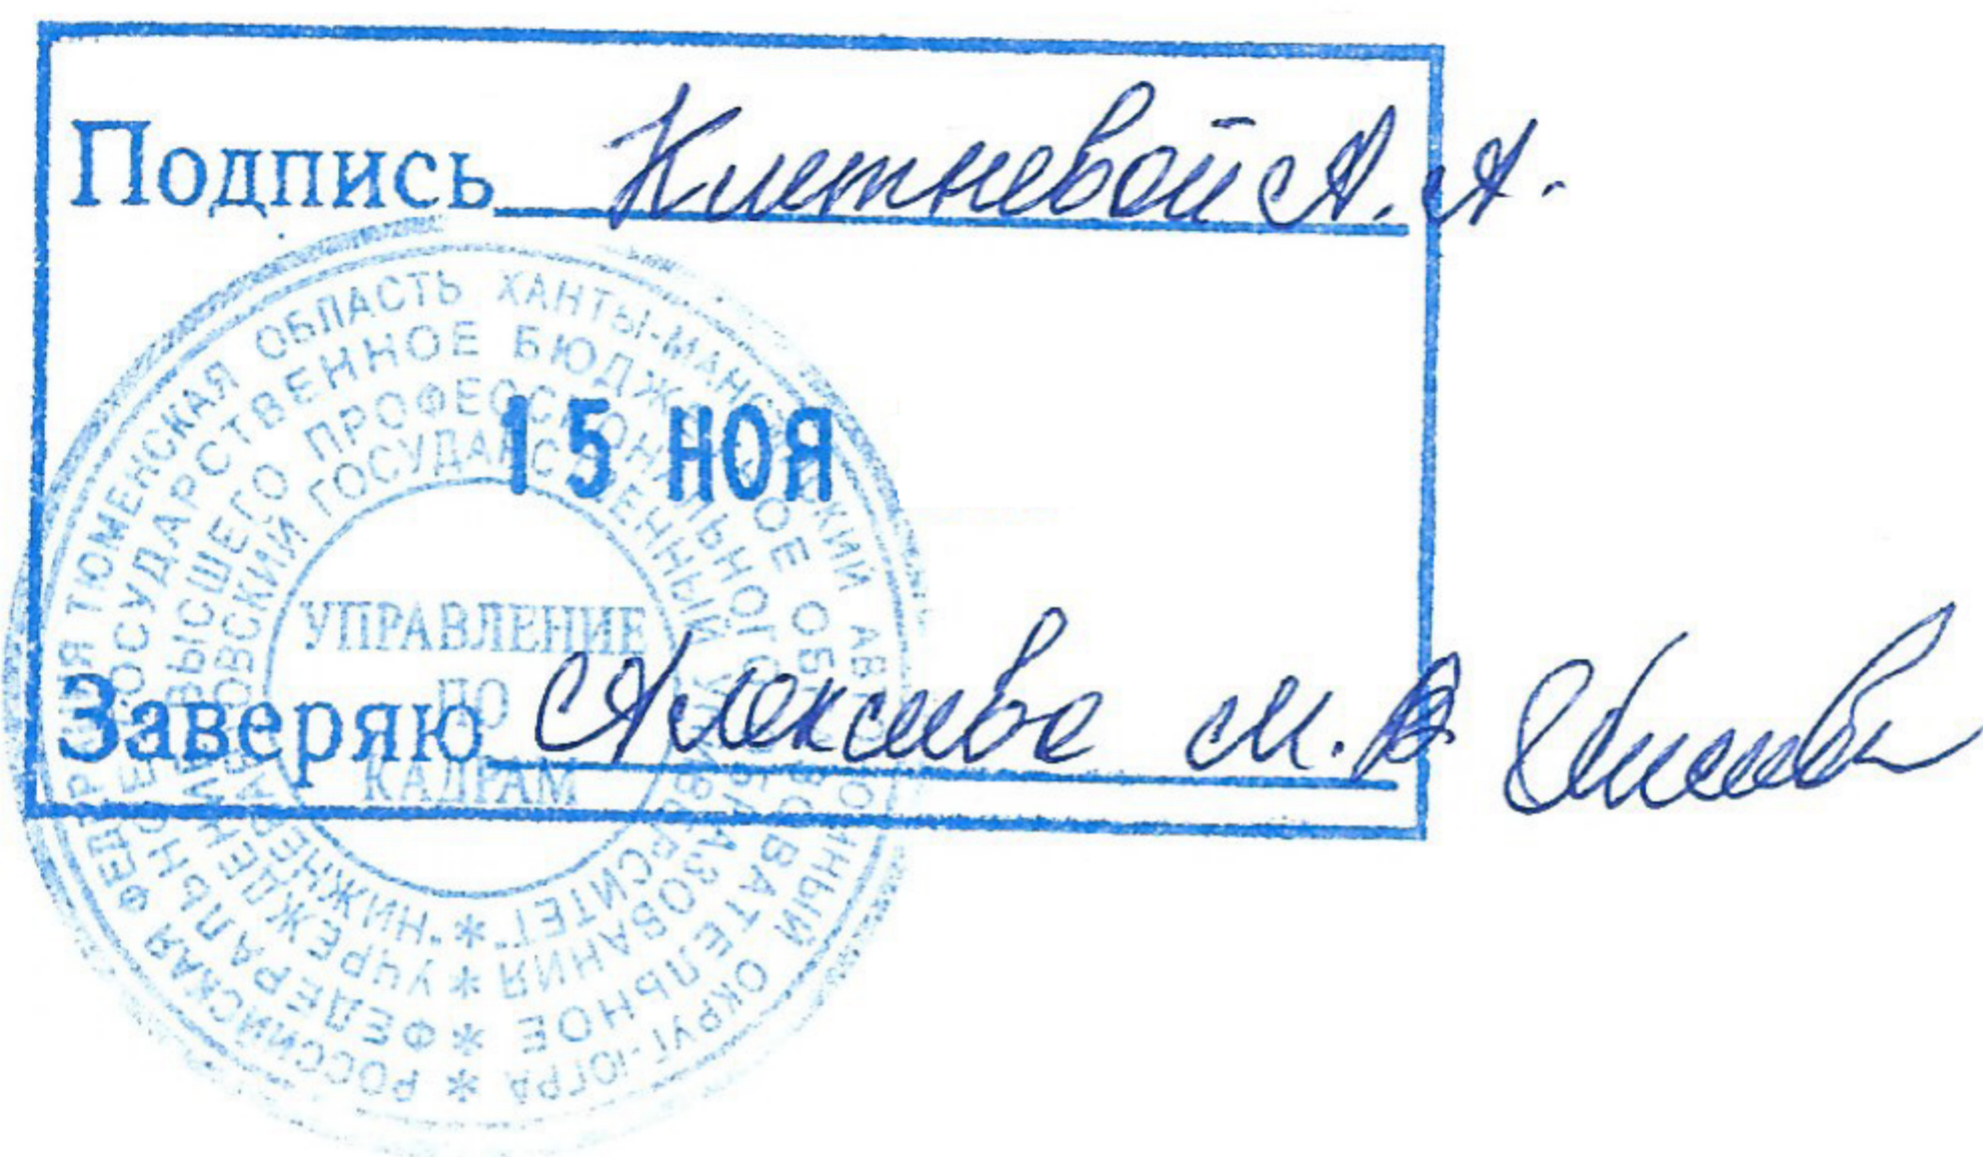 Подпись Клетневой А. А.
15 НОЯ
Заверяю Алексеева М. В.
УПРАВЛЕНИЕ
ПО
КАДРАМ
РОССИЙСКАЯ ФЕДЕРАЦИЯ ТЮМЕНСКАЯ ОБЛАСТЬ ХАНТЫ-МАНСИЙСКИЙ АВТОНОМНЫЙ ОКРУГ-ЮГРА *
ФЕДЕРАЛЬНОЕ ГОСУДАРСТВЕННОЕ БЮДЖЕТНОЕ ОБРАЗОВАТЕЛЬНОЕ *
УЧРЕЖДЕНИЕ ВЫСШЕГО ПРОФЕССИОНАЛЬНОГО ОБРАЗОВАНИЯ *
"НИЖНЕВАРТОВСКИЙ ГОСУДАРСТВЕННЫЙ УНИВЕРСИТЕТ" *